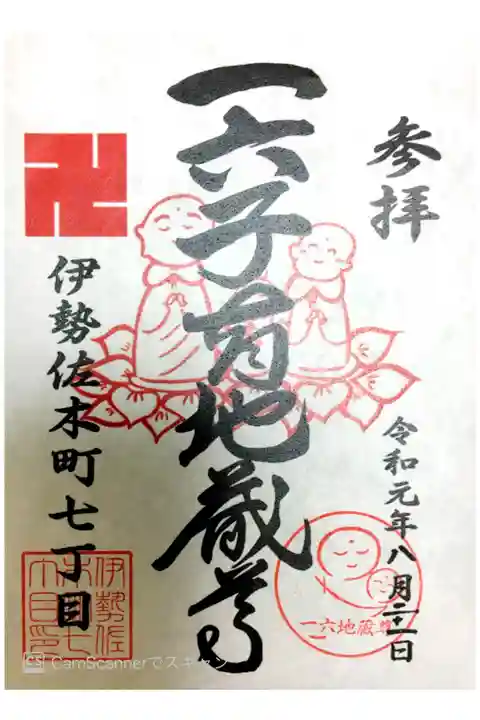 参拝
令和元年八月二十一日
一六子育地蔵尊
伊勢佐木町七丁目
一六地蔵尊
伊勢佐
木町七
丁目印
CS CamScannerでスキャン